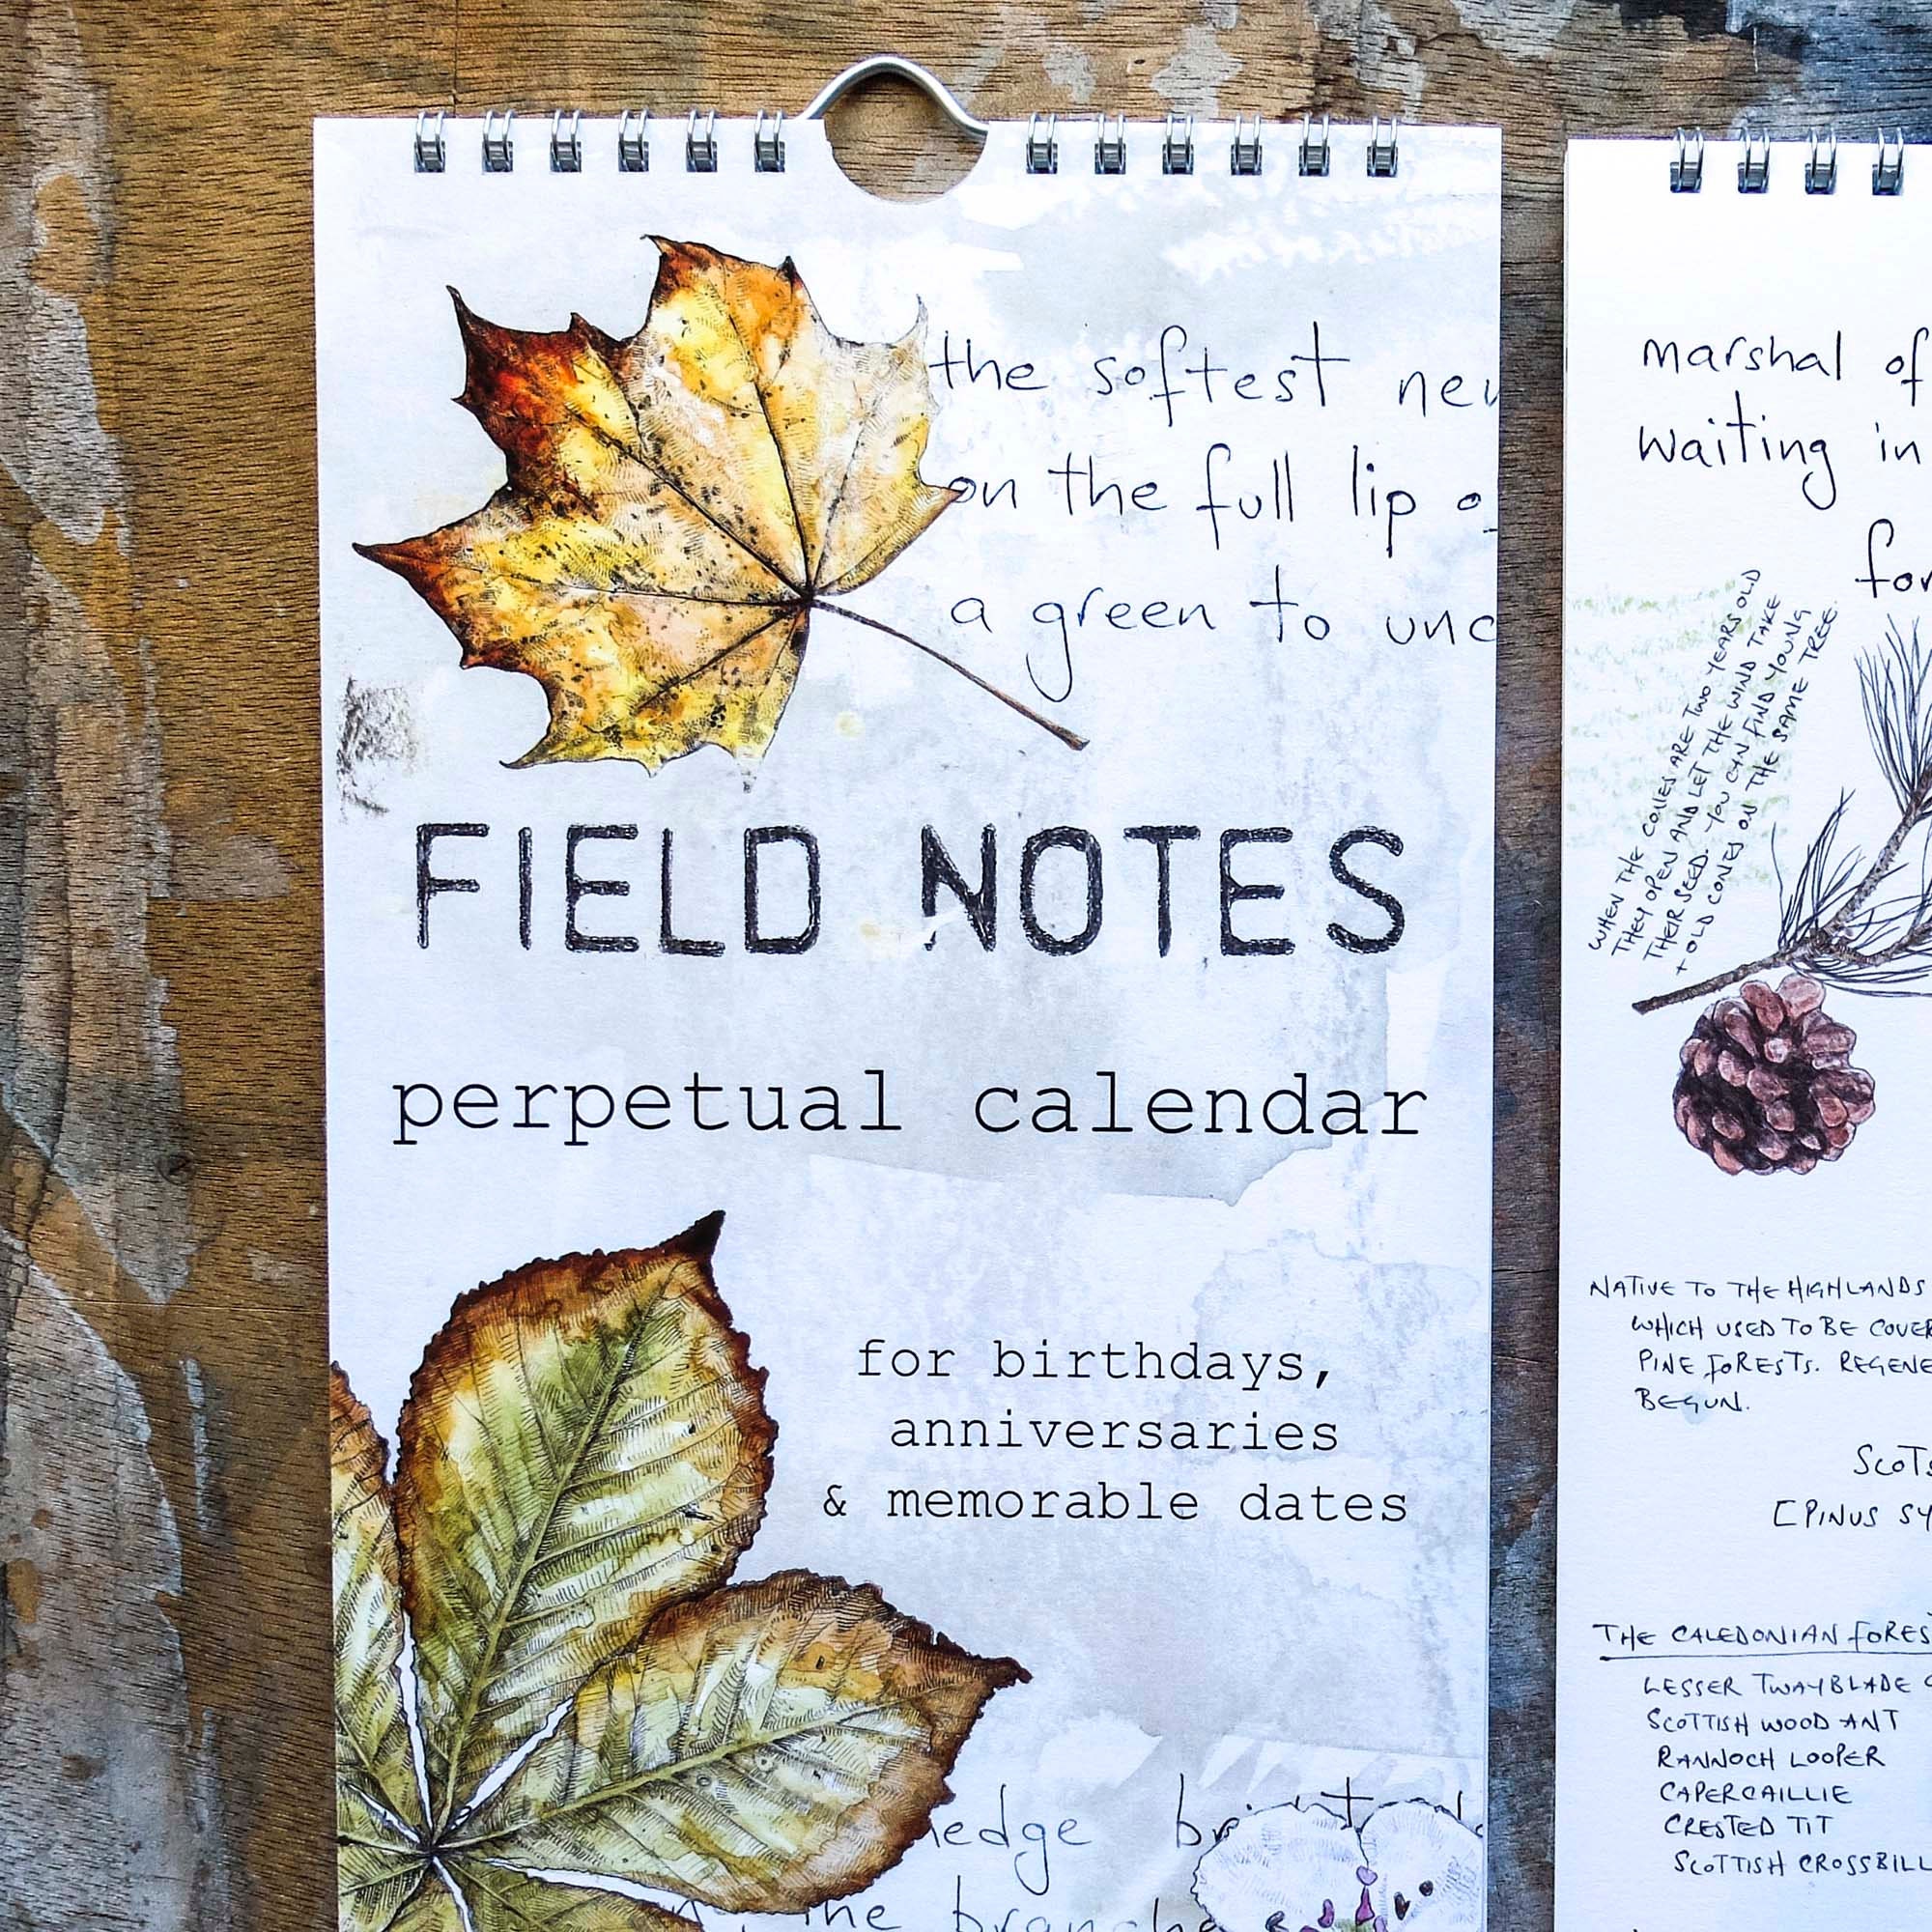 the softest
on the full lip
a green to
FIELD NOTES
perpetual calendar
for birthdays,
anniversaries
& memorable dates
the
marshal of
waiting in
for
WHEN THE CONES ARE TWO YEARS OLD
THEY OPEN AND LET THE WIND TAKE
THEIR SEED. YOU CAN FIND YOUNG
+ OLD CONES ON THE SAME TREE.
NATIVE TO THE HIGHLANDS
WHICH USED TO BE
PINE FORESTS.
BEGUN.
[PINUS
THE CALEDONIAN
LESSER TWAYBLADE
SCOTTISH WOOD ANT
RANNOCH LOOPER
CAPERCAILLIE
CRESTED TIT
SCOTTISH CROSSBILL